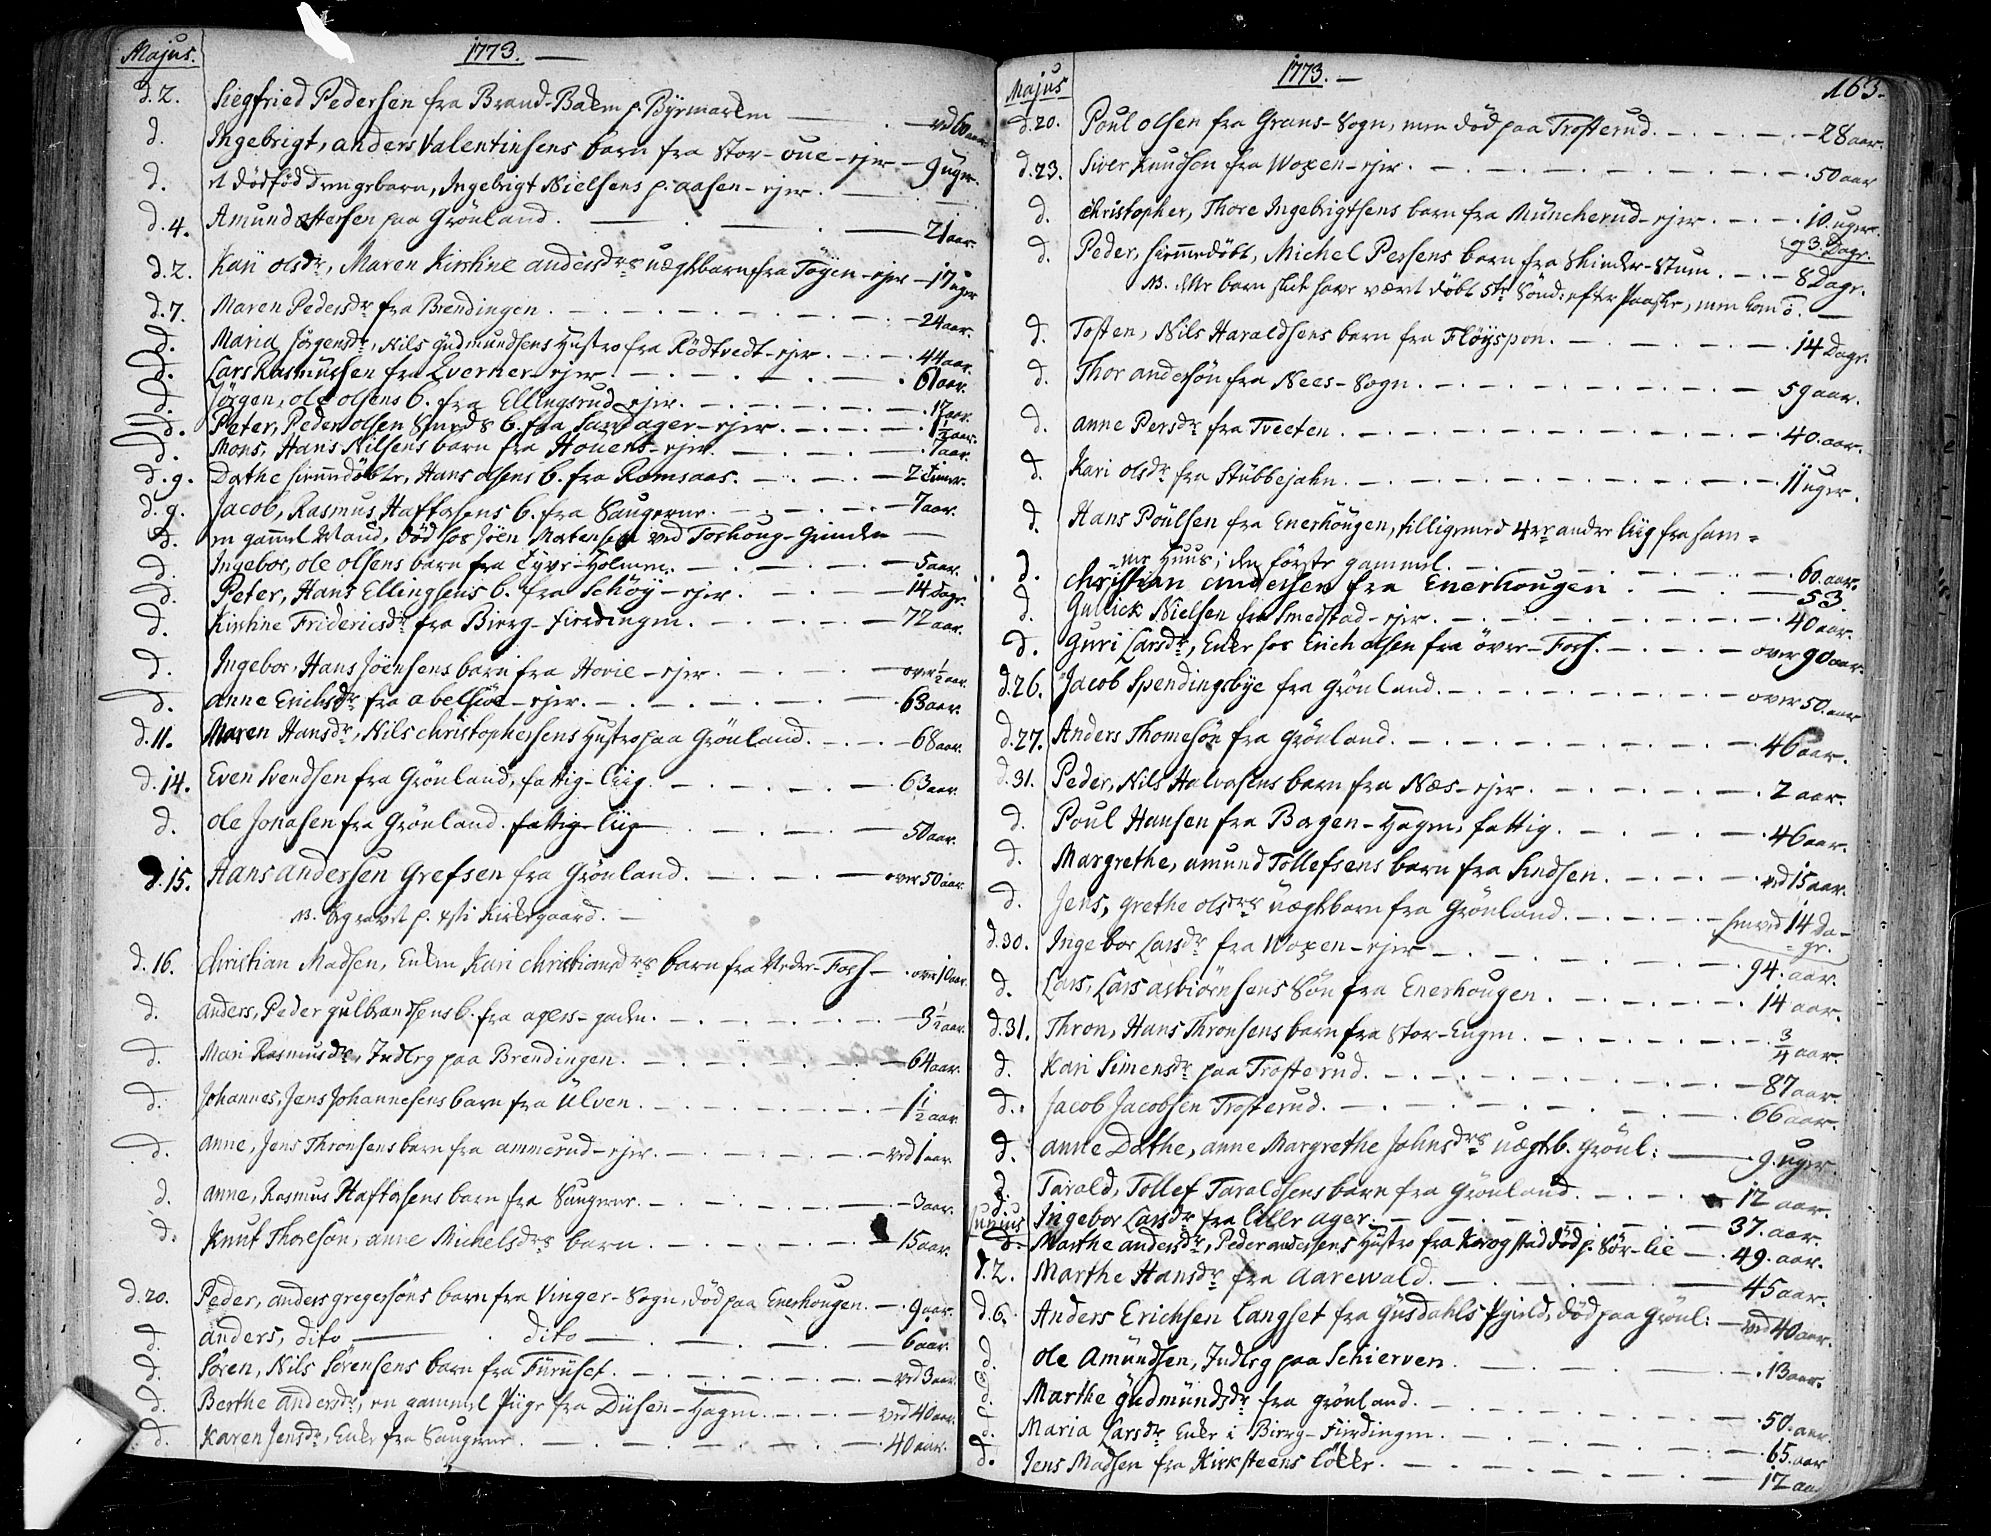 Majus. 1773. —
d. 2. Siegfried Pedersen fra Brand-Bakken p. Byemarken — ved 60 aar.
d. Ingebrigt, anders Valentinsens barn fra Stor-oue-ejer — 9 uger.
d. et dödfödt drengebarn, Ingebrigt Nielsens p. aasen-ejer. —
d. 4. Amund Ottersen paa Grönland. — 21 aar.
d. 2. Kari olsdr, Maren Kirstine andersdrs uægtbarn fra Töyen-ejer — 17 uger
d. 7. Maren Pedersdr fra Brendingen. — 24 aar.
d. Maria Jörgensdr, Nils Gudmundsens Hustro fra Rödtvedt-ejer. — 44 aar.
d. Lars Rasmussen fra Everner-ejer. — 61 aar.
d. Jörgen, ole olsens b. fra Ellingsrud ejer. — 17 aar.
d. Peter, Peder olsen Smeds b. fra Sandager-ejer. — 1½ aar.
d. Mons, Hans Nilsens barn fra Houens-ejer. — 7 aar.
d. 9. Dorthe hiemmedöbte, Hans olsens b. fra Romsaas. — 2 Timer.
d. 9. Jacob, Rasmus Haftorsens b. fra Saugerne. — 7 aar.
d. en gammel Mand, död hos Jöen Mortensen ved Toshoug-Grinden —
d. Ingebor, ole olsens barn fra Tyve-Holmen. — 5 aar.
d. Peter, Hans Ellingsens b. fra Schöy-ejer. — 14 dage.
d. Kirstine Fridericsdr fra Bierg-fierdingen. — 72 aar.
d. Ingebor, Hans Jöensens barn fra Hovie-ejer. — over ½ aar.
d. Anne Erichsdr fra abelsöe-ejer. — 63 aar.
d. 11. Maren Hansdr, Nils christophersens Hustro paa Grönland. — 68 aar.
d. 14. Even Svendsen fra Grönland, fattig-liig. — 63 aar.
d. Ole Jonasen fra Grönland. fattig-liig — 50 aar.
d. 15. Hans andersen Grefsen fra Grönland. — over 50 aar.
NB. begravet p. Kirkegaard. —
d. 16. christian Madsen, Enken Kari christiansdrs barn fra Neder-Foss — over 10 aar.
d. anders, Peder gulbrandsens b. fra agers-gaden. — 3½ aar.
d. Mari Rasmusdr, Indleg paa Brendingen. — 64 aar.
d. Johannes, Jens Johannesens barn fra Ülven. — 1½ aar.
d. anne, Jens Thronsens barn fra ammerud-ejer. — ved 1 aar.
d. anne, Rasmus Haftorsens barn fra Saugerne. — 3 aar.
d. Knut Thoresön, anne Michelsdrs barn — 15 aar.
d. 20. Peder, anders gregersöns barn fra Vinger-Sogn, död paa Enerhougen. — 9 aar.
d. anders, dito — dito — 6 aar.
d. Sören, Nils Sörensens barn fra Füruset. — ved 3 aar.
d. Berthe andersdr, en gammel Piige fra Düsen-Hagen. — ved 40 aar.
d. Karen Jensdr, Enke fra Saugerne. — 40 aar.
Majus 1773. — 163.
d. 20. Poul olsen fra Grans-Sogn, men död paa Trosterud. — 28 aar.
d. 23. Siver Knudsen fra Woxen-ejer. — 50 aar
d. christopher, Thore Ingebrigtsens barn fra Müncherud-ejer. — 10. uger.
og 3. Dage.
d. Peder, hiemmedöbt, Michel Persens barn fra Skinder-Stuen. — 8 Dage.
NB. dette barn skal have vært döbt 5te Sönd: efter Paaske, men kom ö. —
d. Tosten, Nils Haraldsens barn fra Flöyspon. — 14 Dage.
d. Thor andersön fra Nees-Sogn. — 59 aar.
d. anne Persdr fra Tveeten. — 40. aar.
d. Kari olsdr fra Stubbejahn. — 11 uger.
d. Hans Poulsen fra Enerhougen, tilligemed 4re andre liig fra sam=
=me Huus; den förste gammel. — 60. aar.
d. christian andersen fra Enerhougen — 53.
d. Gullick Nielsen fra Smedstad-ejer. — 40 aar.
d. Guri Larsdr, Enke hos Erich olsen fra över-Foss. — over 90 aar.
d. 26. Jacob Spendingsbye fra Grönland. — over 50. aar
d. 27. Anders Thomesön fra Grönland. — 46 aar.
d. 31. Peder, Nils Halvorsens barn fra Næs-ejer. — 2 aar.
d. Poul Hansen fra Borgen-Hagen, fattig. — 46 aar.
d. Margrethe, amund Tollefsens barn fra Lindsen. — ved 15 aar.
d. Jens, grethe olsdrs uægtbarn fra Grönland. — ved 14 Da-
=ge.
d. 30. Ingebor Larsdr fra Woxen-ejer — 94. aar.
d. Lars, Lars asbiörnsens Sön fra Enerhougen. — 14 aar.
d. 31. Thron, Hans Thronsens barn fra Stor-Engen. — ¾ aar.
d. Kari Simensdr paa Trosterud. — 87 aar.
d. Jacob Jacobsen Trosterud. — 66 aar.
d. anne Dorthe, anne Margrethe Johnsdrs uægtb. grönl: — 9. uger.
d. Tarald, Tollef Taraldsens barn fra Grönland. — 12 aar.
Junius
d. Ingebor Larsdr fra Lille ager. — 37. aar.
d. Marthe andersdr, Peder andersens Hustro fra Krogstad död p. Sör-lie — 49. aar.
d. 2. Marthe Hansdr fra Aarewald. — 45 aar.
d. 6. Anders Erichsen Langset fra Gusdahls Pgield, död paa Grönl: — ved 40 aar.
d. Ole Amundsen, Indleg paa Schierven. — 13 aar.
d. Marthe gudmundsdr fra grönland. — 50. aar.
d. Maria Larsdr Enke i Bierg-Fierdingen. — 65. aar
d. Jens Madsen fra Kirksteens lökke. — 12 aar